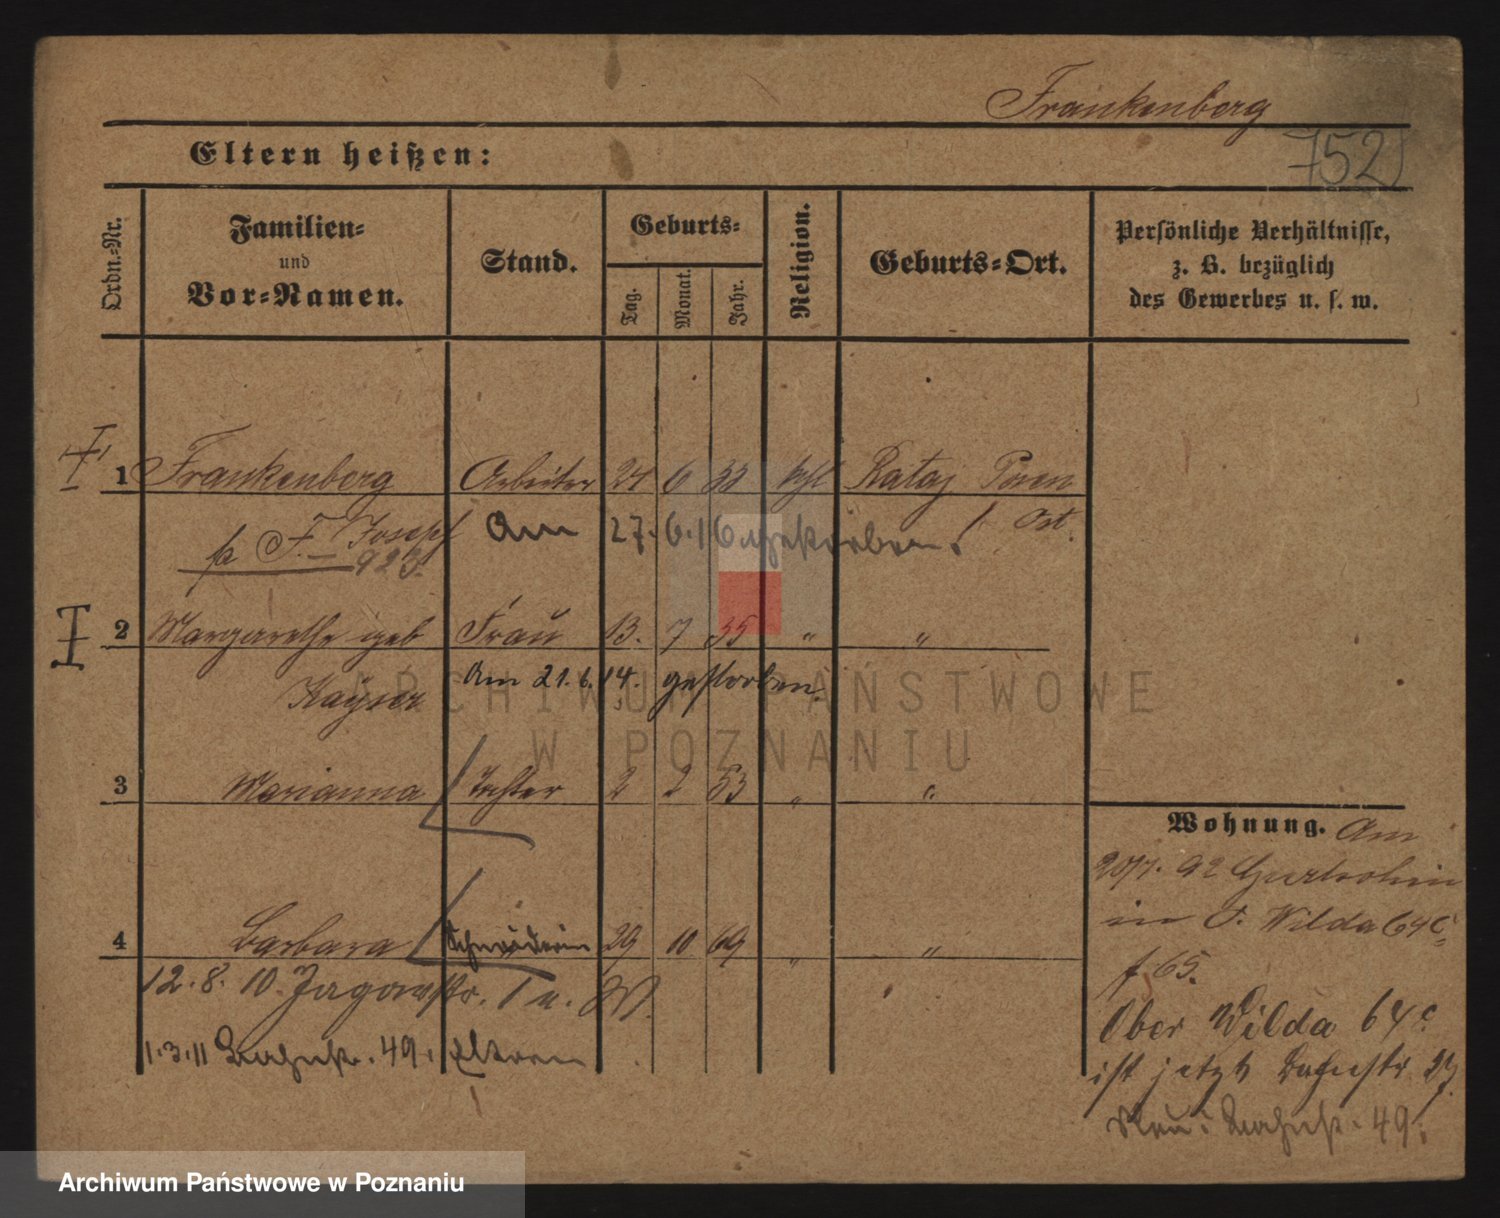 Frankenberg
752
Eltern heißen:
Ordn.-Nr.
Familien-
und
Vor-Namen.
Stand.
Geburts-
Tag.
Monat.
Jahr.
Religion.
Geburts-Ort.
Persönliche Verhältnisse,
z. B. bezüglich
des Gewerbes u. s. w.
1 Frankenberg Arbeiter 24 6 33 kthl Rataj Posen
F. Joseph Am 27.6.16 gestorben. Ost.
923.
2 Margarethe geb Frau 13. 7 35 " "
Kayser Am 21.6.14. gestorben.
3 Marianna Tochter 2 2 53 " "
4 Barbara Schneiderin 29 10 69 " "
12.8.10 Jagowstr. 1 u. W.
1.3.11 Bahnstr. 49. Eltern
Wohnung. Am
20/7. 92 Gurtschin
in O. Wilda 64c
f 65.
Ober Wilda 64c.
ist jetzt Bahnstr 27.
Neu: Bahnstr. 49.
ARCHIWUM PAŃSTWOWE
W POZNANIU
Archiwum Państwowe w Poznaniu